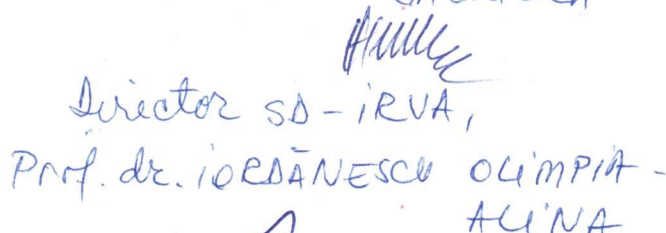 Director SD-IRVA,
Prof. dr. IORDĂNESCU OLIMPIA-
ALINA